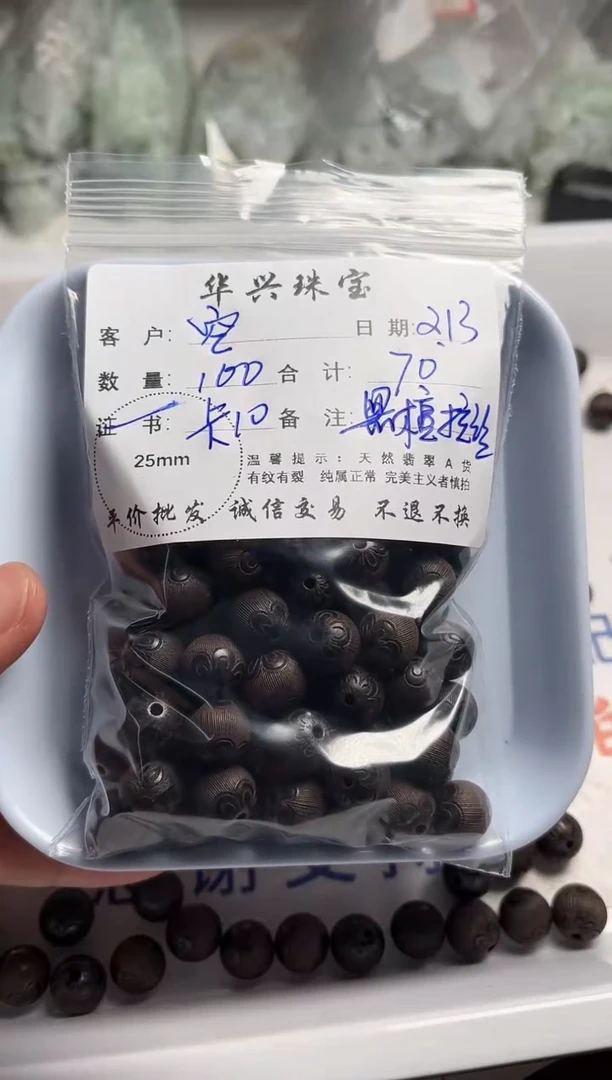 华兴珠宝
客 户: 空 日 期: 2.13
数 量: 100 合 计: 70
证 书: 卡10 备 注: 黑檀拉丝
25mm
温馨提示: 天然翡翠A货
有纹有裂 纯属正常 完美主义者慎拍
平价批发 诚信交易 不退不换